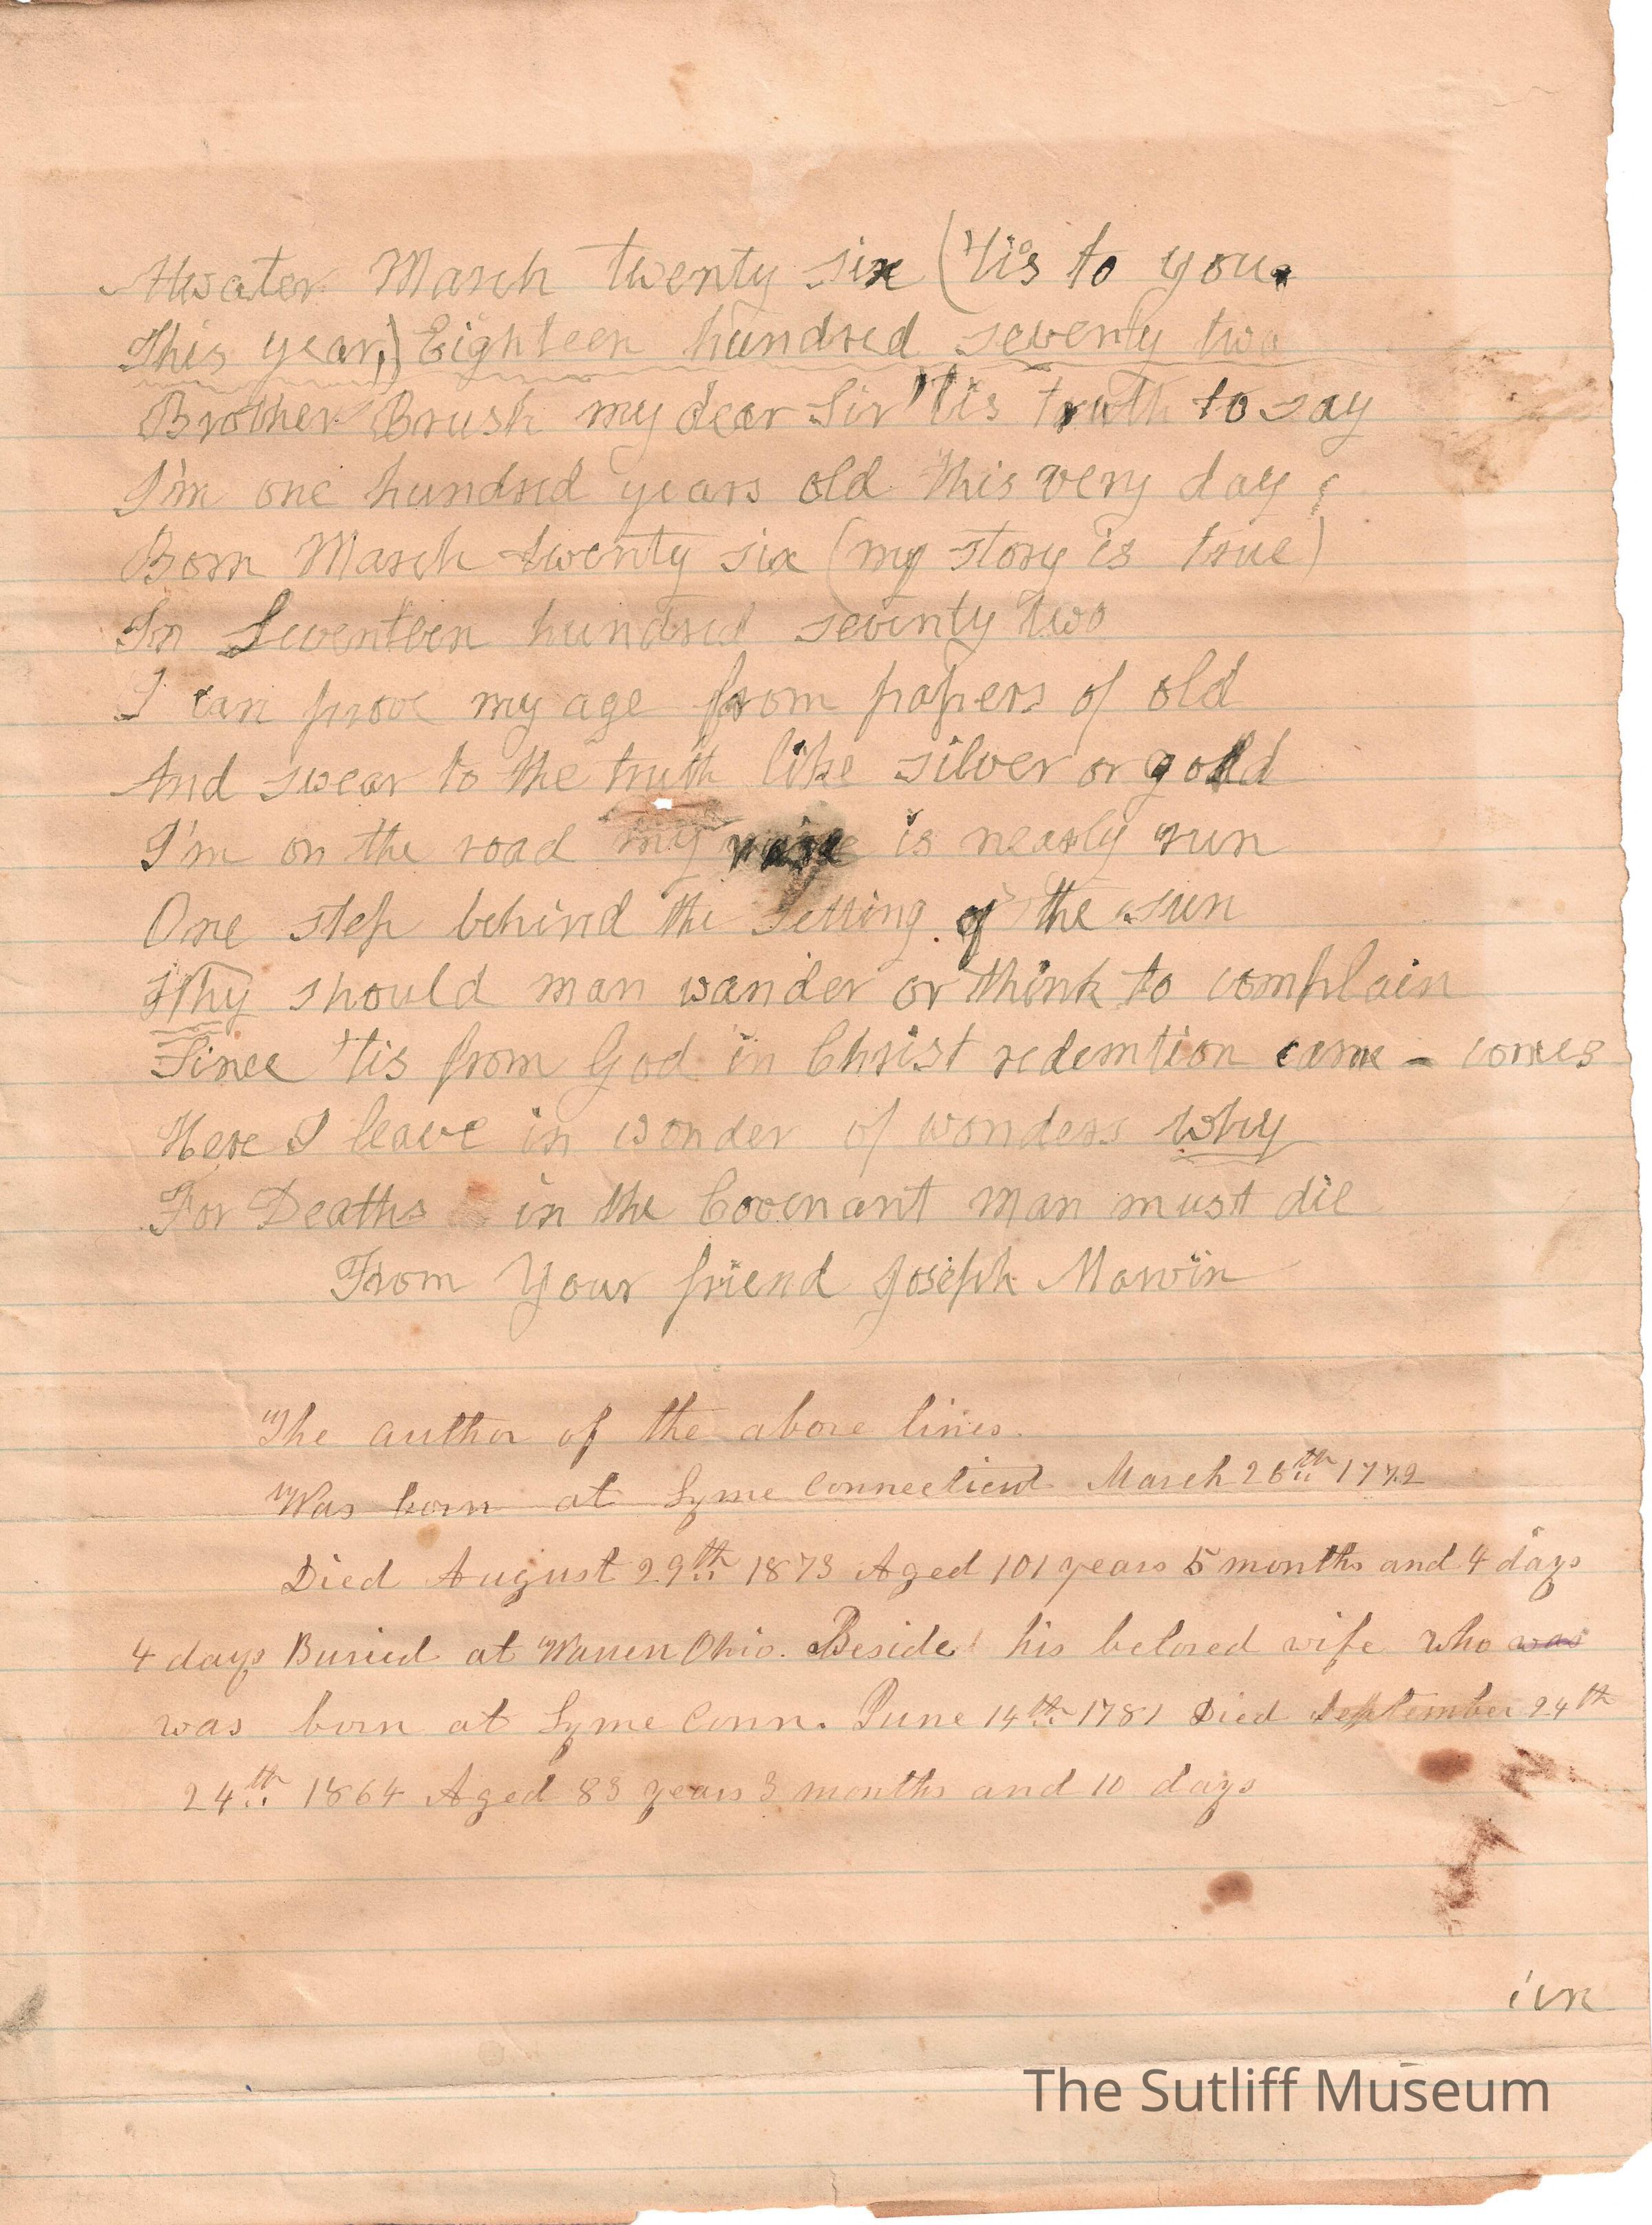 Atwater March twenty six ('tis to you.
This year,) Eighteen hundred seventy two
Brother Brush my dear Sir 'tis truth to say
I'm one hundred years old this very day ;
Born March twenty six (my story is true)
In Seventeen hundred seventy two
I can prove my age from papers of old
And swear to the truth like silver or gold
I'm on the road my race is nearly run
One step behind the setting of the sun
Why should man wander or think to complain
Since 'tis from God in Christ redemtion came - comes
Here I leave in wonder of wonders why
For Deaths in the Covenant man must die
From Your friend Joseph Marvin
The author of the above lines.
Was born at Lyme Connecticut March 26th 1772
Died August 29th 1873 Aged 101 years 5 months and 4 days
4 days Buried at Warren Ohio. Beside his beloved wife who was
was born at Lyme Conn. June 14th 1781 Died September 24th
24th 1864 Aged 83 years 3 months and 10 days
The Sutliff Museum